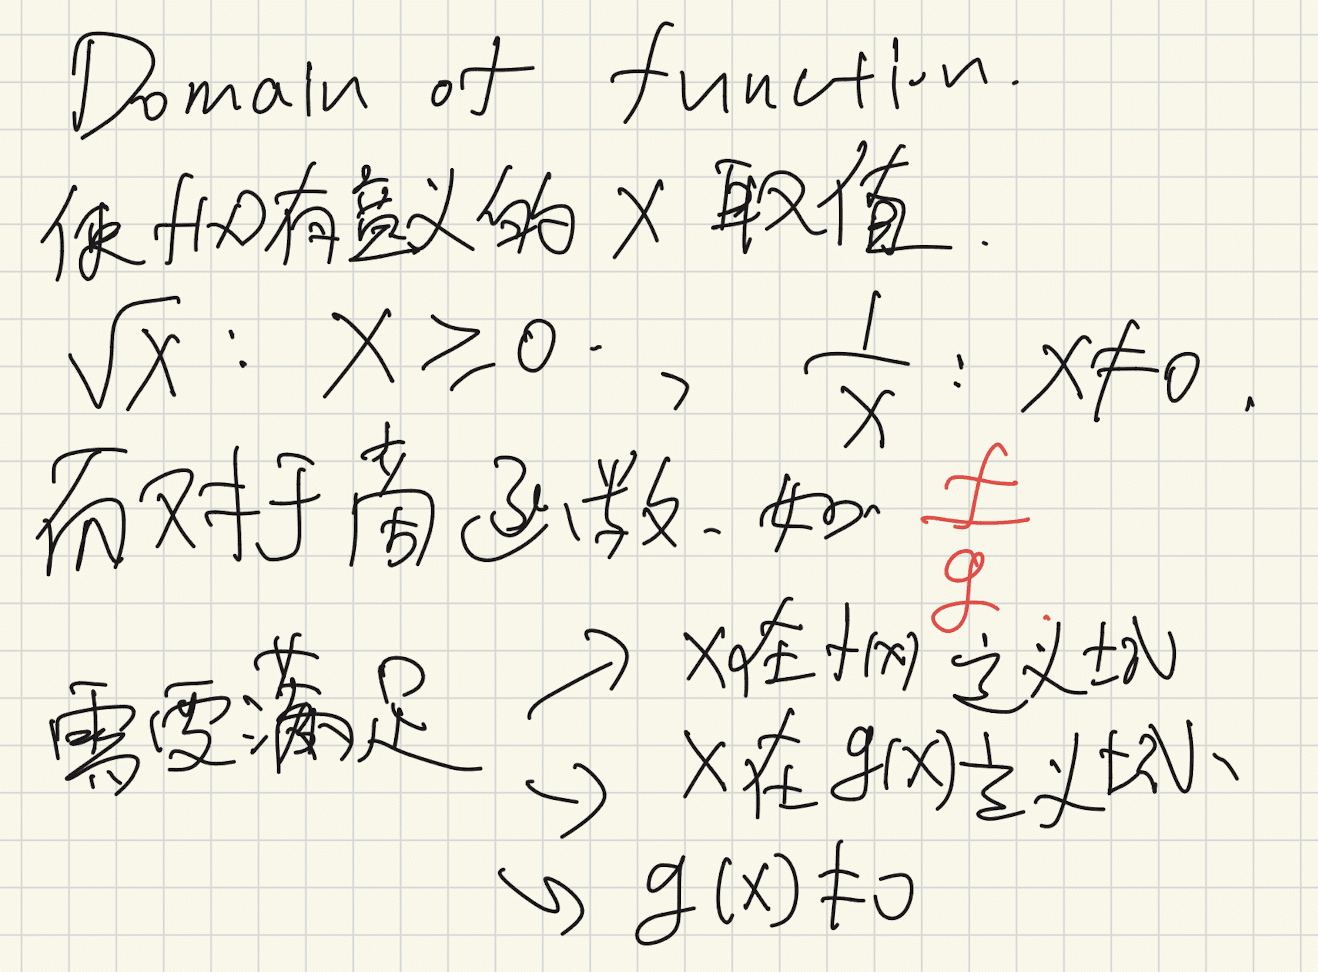 Domain of function.
使f(x)有意义的 x 取值.
√x : x ≥ 0. , 1/x : x≠0.
而对于商函数. 如 f/g
需要满足 → x在f(x)定义域
→ x在g(x)定义域、
→ g(x)≠0